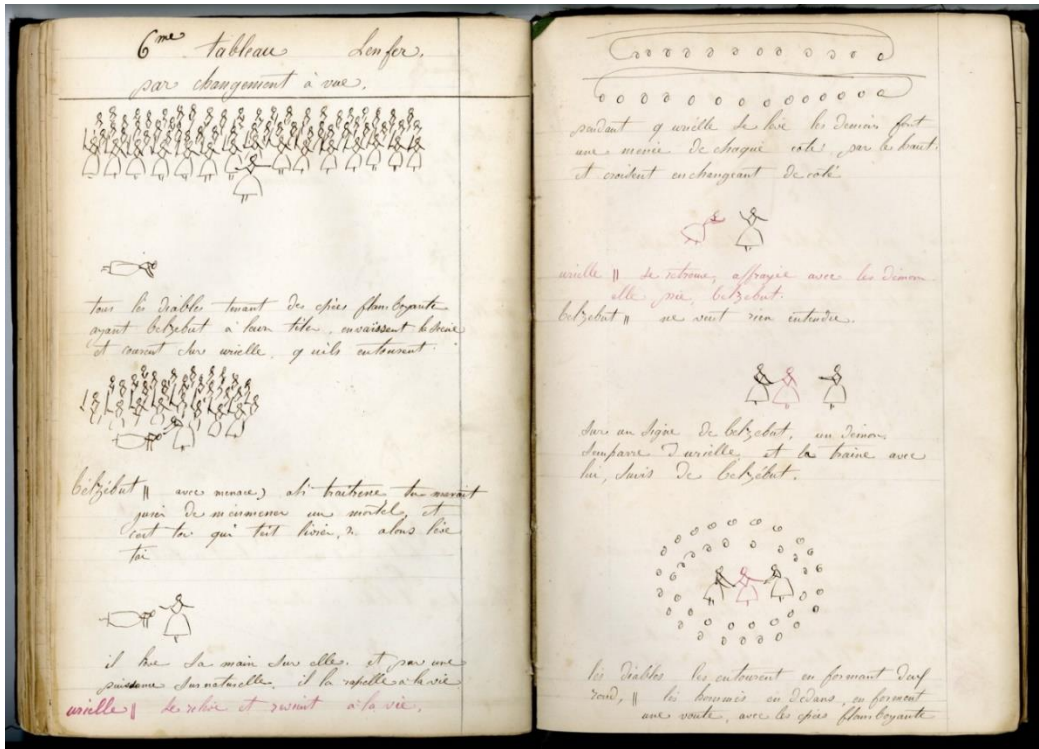 6me tableau Lenfer.
par changement à vue.
tous les diables tenant des épées flamboyante
ayant belzebut à leur tête, envaïssent la scène
et courent sur urielle, quils entourent.
belzébut || avec menace) ah traitresse tu
jurer de mèmmener un mortel, et
cest toi qui test livrer, alons lève
toi
il lève sa main sur elle. et par une
puissance surnaturelle, il la rapelle à la vie
urielle || se relève et revient à la vie.
pendant qurielle se lève les démons font
une menée de chaque coté par le haut.
et croisent en changeant de coté
urielle || se retrouve, affrayée avec les démons
elle prie, belzebut.
belzebut || ne veut rien entendre.
sur un signe de belzebut, un démons
semparre durielle et la traine avec
lui, suivis de belzébut.
les diables les entourent en formant
rond, || les hommes en dedans, en forment
une voute, avec les épées flamboyante